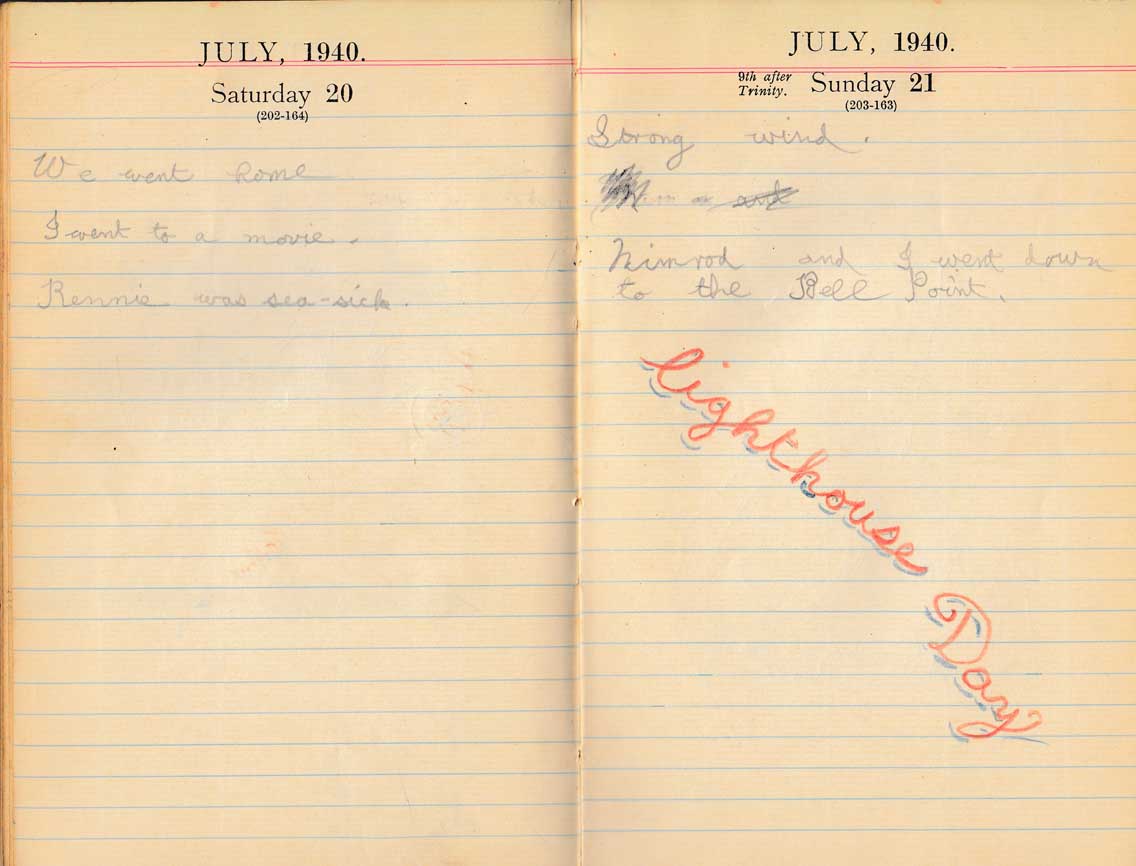 JULY, 1940.
Saturday 20
(202-164)
We went home
I went to a movie.
Rennie was sea-sick.
JULY, 1940.
9th after
Trinity.
Sunday 21
(203-163)
Strong wind.
and
Nimrod and I went down
to the Bell Point.
lighthouse
Day